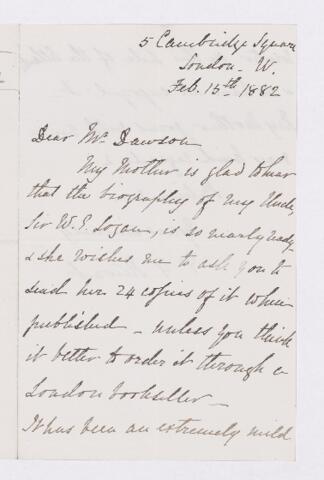 5 Cambridge Square
London. W.
Feb. 15th 1882
Dear Mr Dawson
My Mother is glad to hear
that the biography of my Uncle,
Sir W. E. Logan, is so nearly ready
& she wishes me to ask you to
send her 24 copies of it when
published – unless you think
it better to order it through a
London bookseller –
It has been an extremely mild